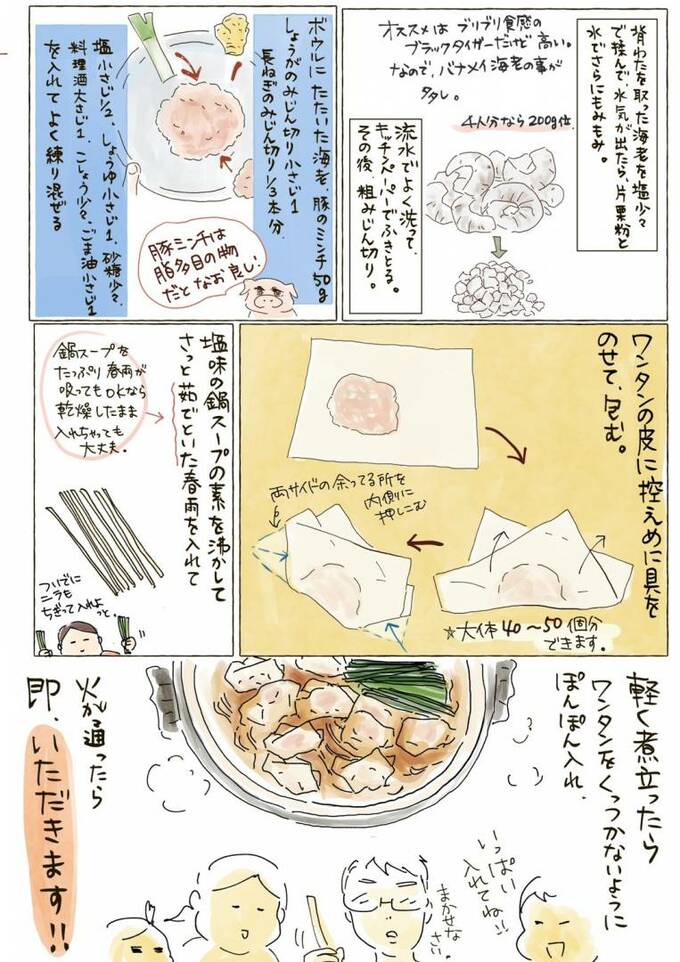 背わたを取った海老を塩少々
で揉んで、水気が出たら、片栗粉と
水でさらにもみもみ。
オススメは ブリブリ食感の
ブラックタイガーだけど 高い。
なので、バナメイ海老の事が
多し。
4人分なら200g位
流水でよく洗って、
キッチンペーパーでふきとる。
その後、粗みじん切り。
ボウルに たたいた海老、豚のミンチ50g
しょうがのみじん切り小さじ1
長ねぎのみじん切り1/3本分
塩小さじ1/2、しょうゆ小さじ1、砂糖少々、
料理酒大さじ1、こしょう少々、ごま油小さじ1
を入れてよく練り混ぜる
豚ミンチは
脂多目の物
だとなお良い
ワンタンの皮に控えめに具を
のせて、包む。
両サイドの余ってる所を
内側に
押しこむ
☆大体40〜50個分
できます。
塩味の鍋スープの素を沸かして
さっと茹でといた春雨を入れて
鍋スープを
たっぷり春雨が
吸ってもOKなら
乾燥したまま
入れちゃっても
大丈夫。
ついでに
ニラも
ちぎって入れよ
っと。
軽く煮立ったら
ワンタンをくっつかないように
ぽんぽん入れ、
火が通ったら
即、いただきます!!
いっぱい
入れてね!!
まかせな
さい。